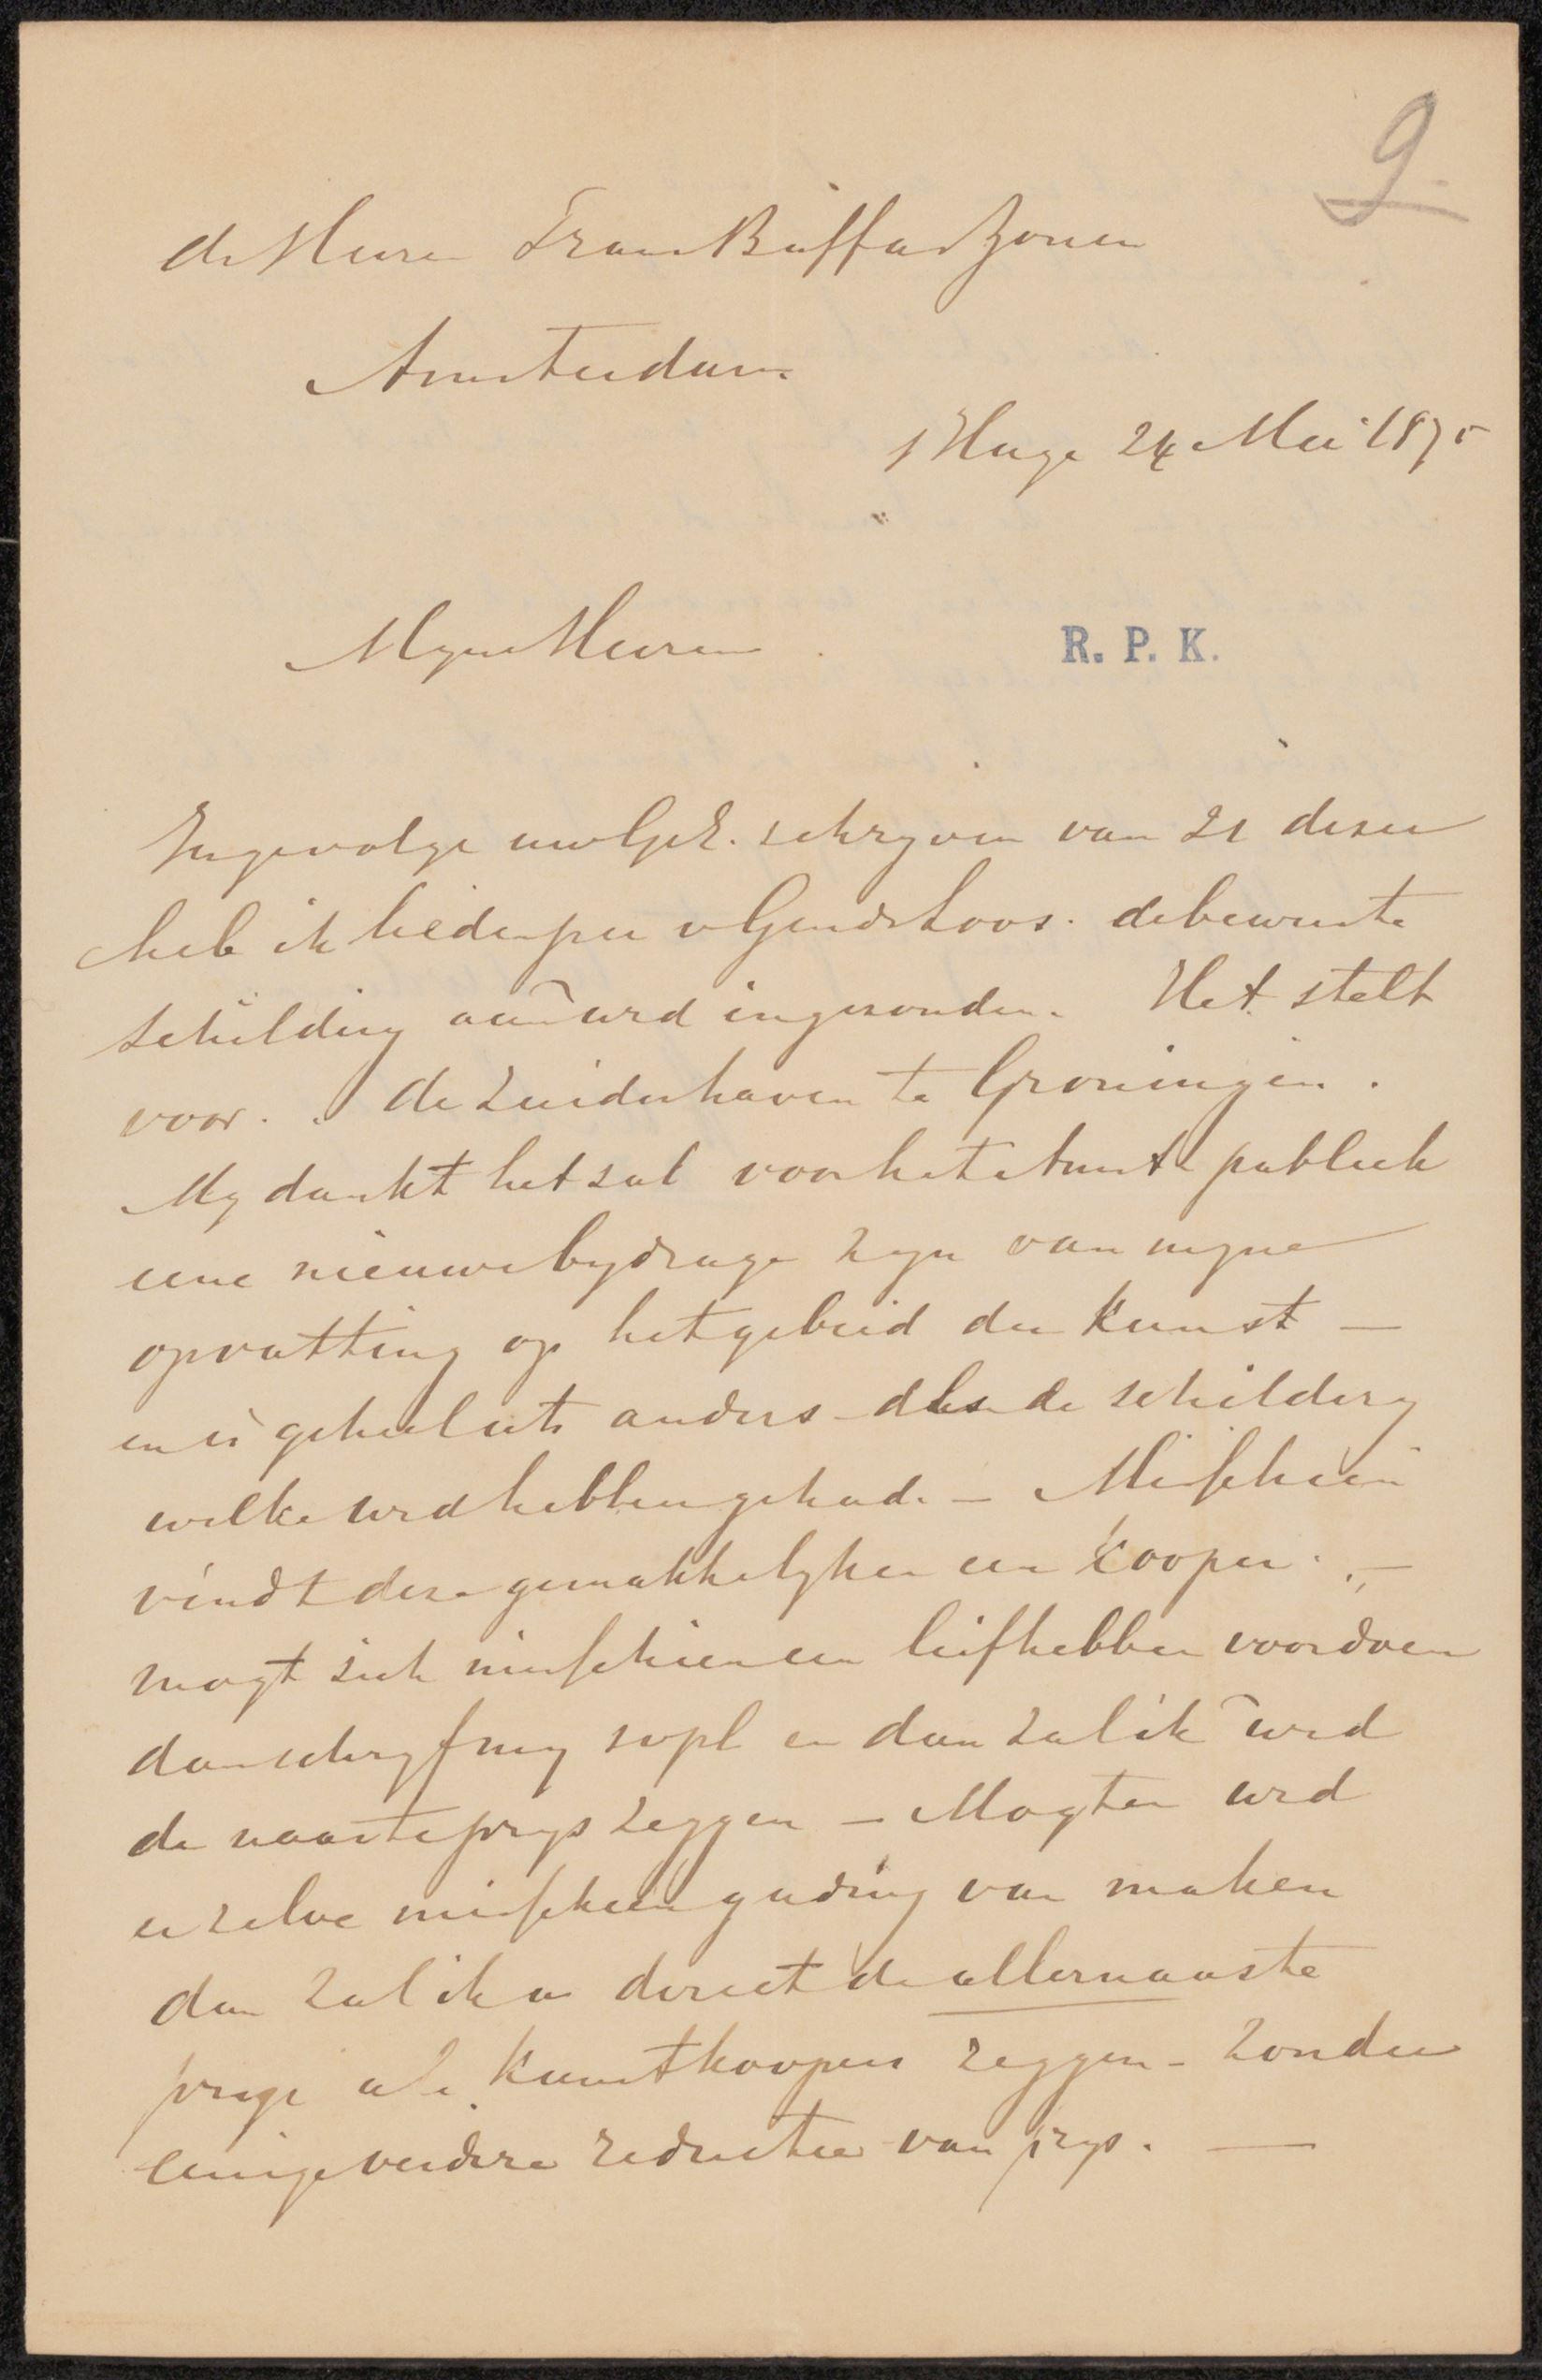 9
de Heeren Frans Buffa & Zonen
Amsterdam
s Hage 24 Mei 1875
Myne Heeren
R. P. K.
Ingevolge uwEgeE. schryven van 21 deser
heb ik heden per v Gend & Loos. de bewuste
schildery aan ued ingezonden. Het stelt
voor. de Zuiderhaven te Groningen.
My dunkt het zal voor het kunst publiek
eene nieuwe bydrage zyn van myne
opvatting op het gebied der kunst —
en is geheel iets anders dan de schildery
welke ued hebben gehad. — Misschien
vindt deze gemakkelyker een kooper. —
mogt zich misschien een liefhebber voordoen
dan schryf my svpl en dan zal ik ued
de naaste prys zeggen — Mogten ued
er zelve misschien gading van maken
dan zal ik u direct de allernaaste
prys als kunstkoopers zeggen — zonder
eenige verdere reductie van prys. —